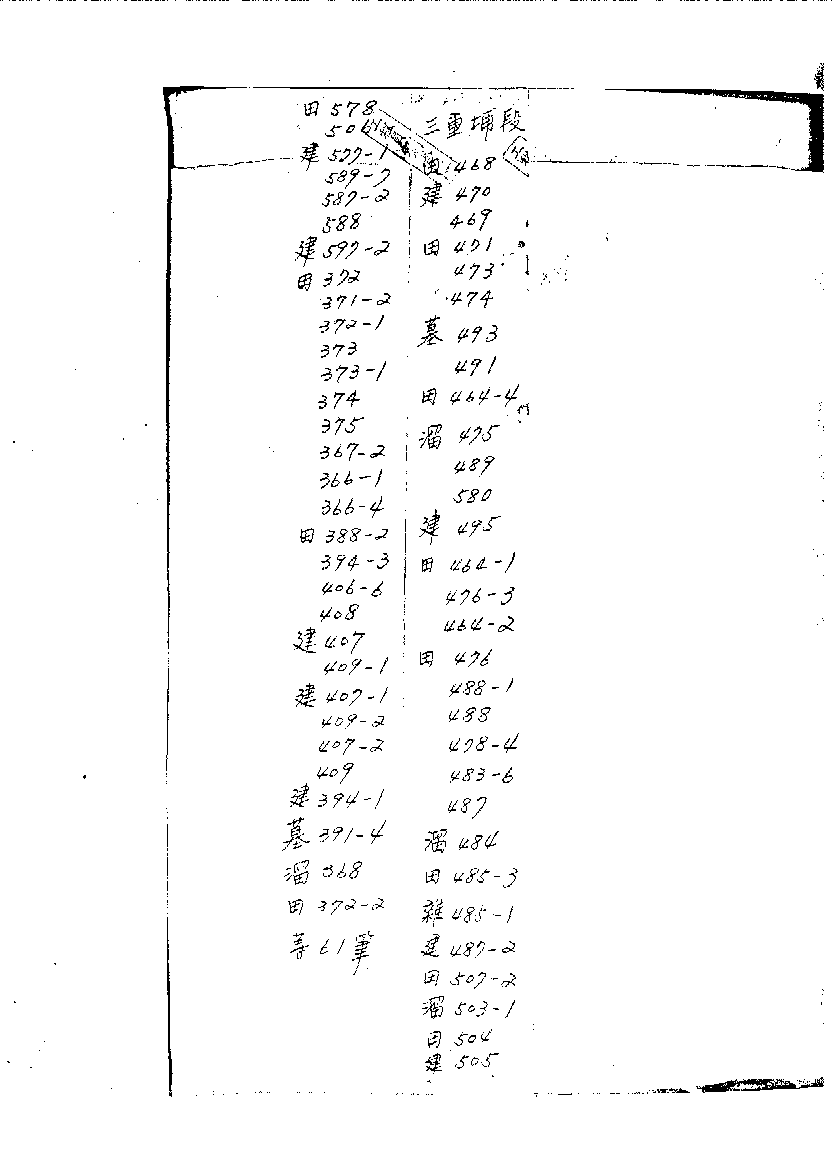 三重埔段
田 468
建 470
469
田 471
473
474
墓 493
491
田 464-4
溜 475
489
580
建 495
田 464-1
476-3
464-2
田 476
488-1
488
478-4
483-6
487
溜 484
田 485-3
雜 485-1
建 487-2
田 507-2
溜 503-1
田 504
建 505
田 578
建 577-1
589-7
587-2
588
建 597-2
田 372
371-2
372-1
373
373-1
374
375
367-2
366-1
366-4
田 388-2
394-3
406-6
408
建 407
409-1
建 407-1
409-2
407-2
409
建 394-1
墓 391-4
溜 368
田 372-2
等61筆